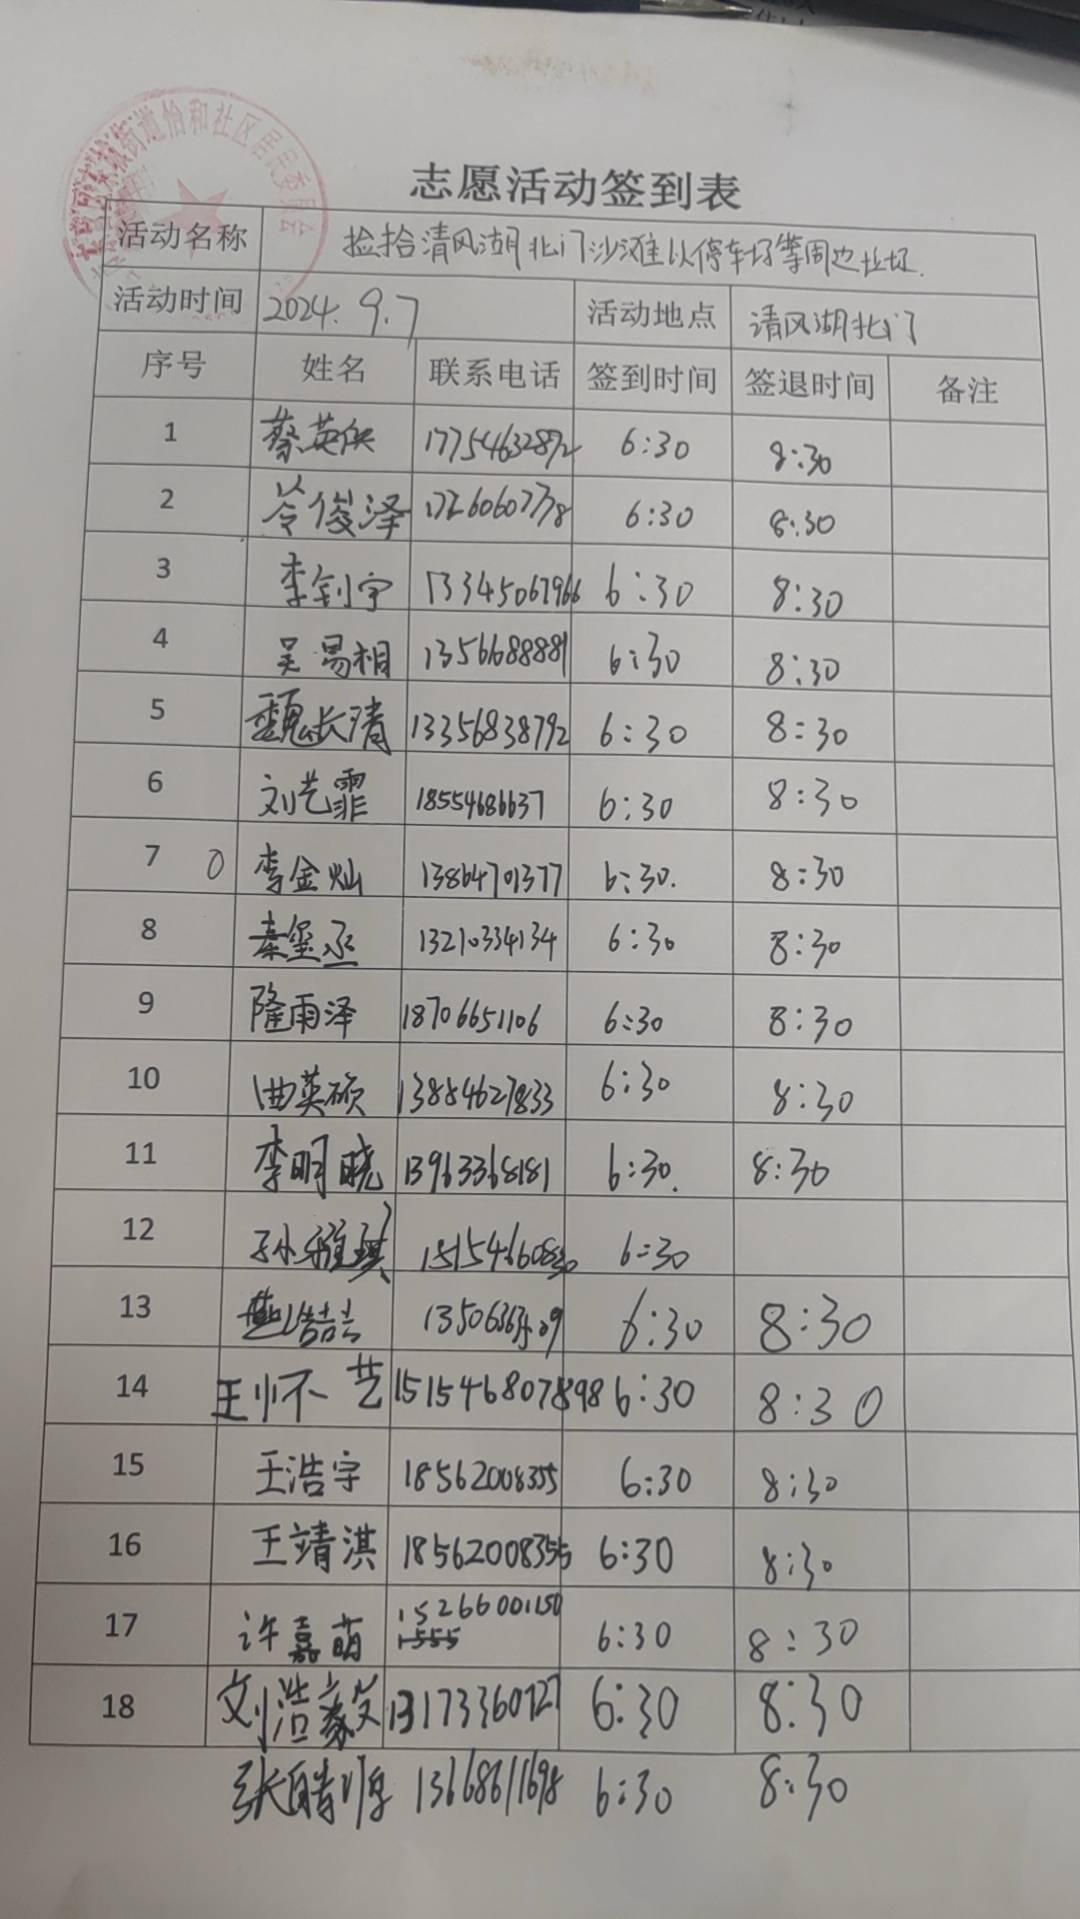 街道怡和社区居民委员会
志愿活动签到表
活动名称 捡拾清风湖北门沙滩以停车场等周边垃圾.
活动时间 2024.9.7 活动地点 清风湖北门
序号 姓名 联系电话 签到时间 签退时间 备注
1 蔡英俠 17754632892 6:30 8:30
2 苓俊泽 17260607778 6:30 8:30
3 李钊宇 13345067966 6:30 8:30
4 吴易相 13566888881 6:30 8:30
5 魏长清 13356838792 6:30 8:30
6 刘艺霏 18554686637 6:30 8:30
7 0 李金灿 13864701377 6:30. 8:30
8 秦玺丞 13210334134 6:30 8:30
9 隆雨泽 18706651106 6:30 8:30
10 曲英硕 13884627833 6:30 8:30
11 李明晓 13963368181 6:30. 8:30
12 孙雅琪 15154660830 6:30
13 喆 6:30 8:30
14 王怀艺 1515468078898 6:30 8:30
15 王浩宇 18562008355 6:30 8:30
16 王靖淇 18562008355 6:30 8:30
17 许嘉萌 15266001150 6:30 8:30
1555
18 刘浩毅 13173360727 6:30 8:30
张皓 13668611698 6:30 8:30